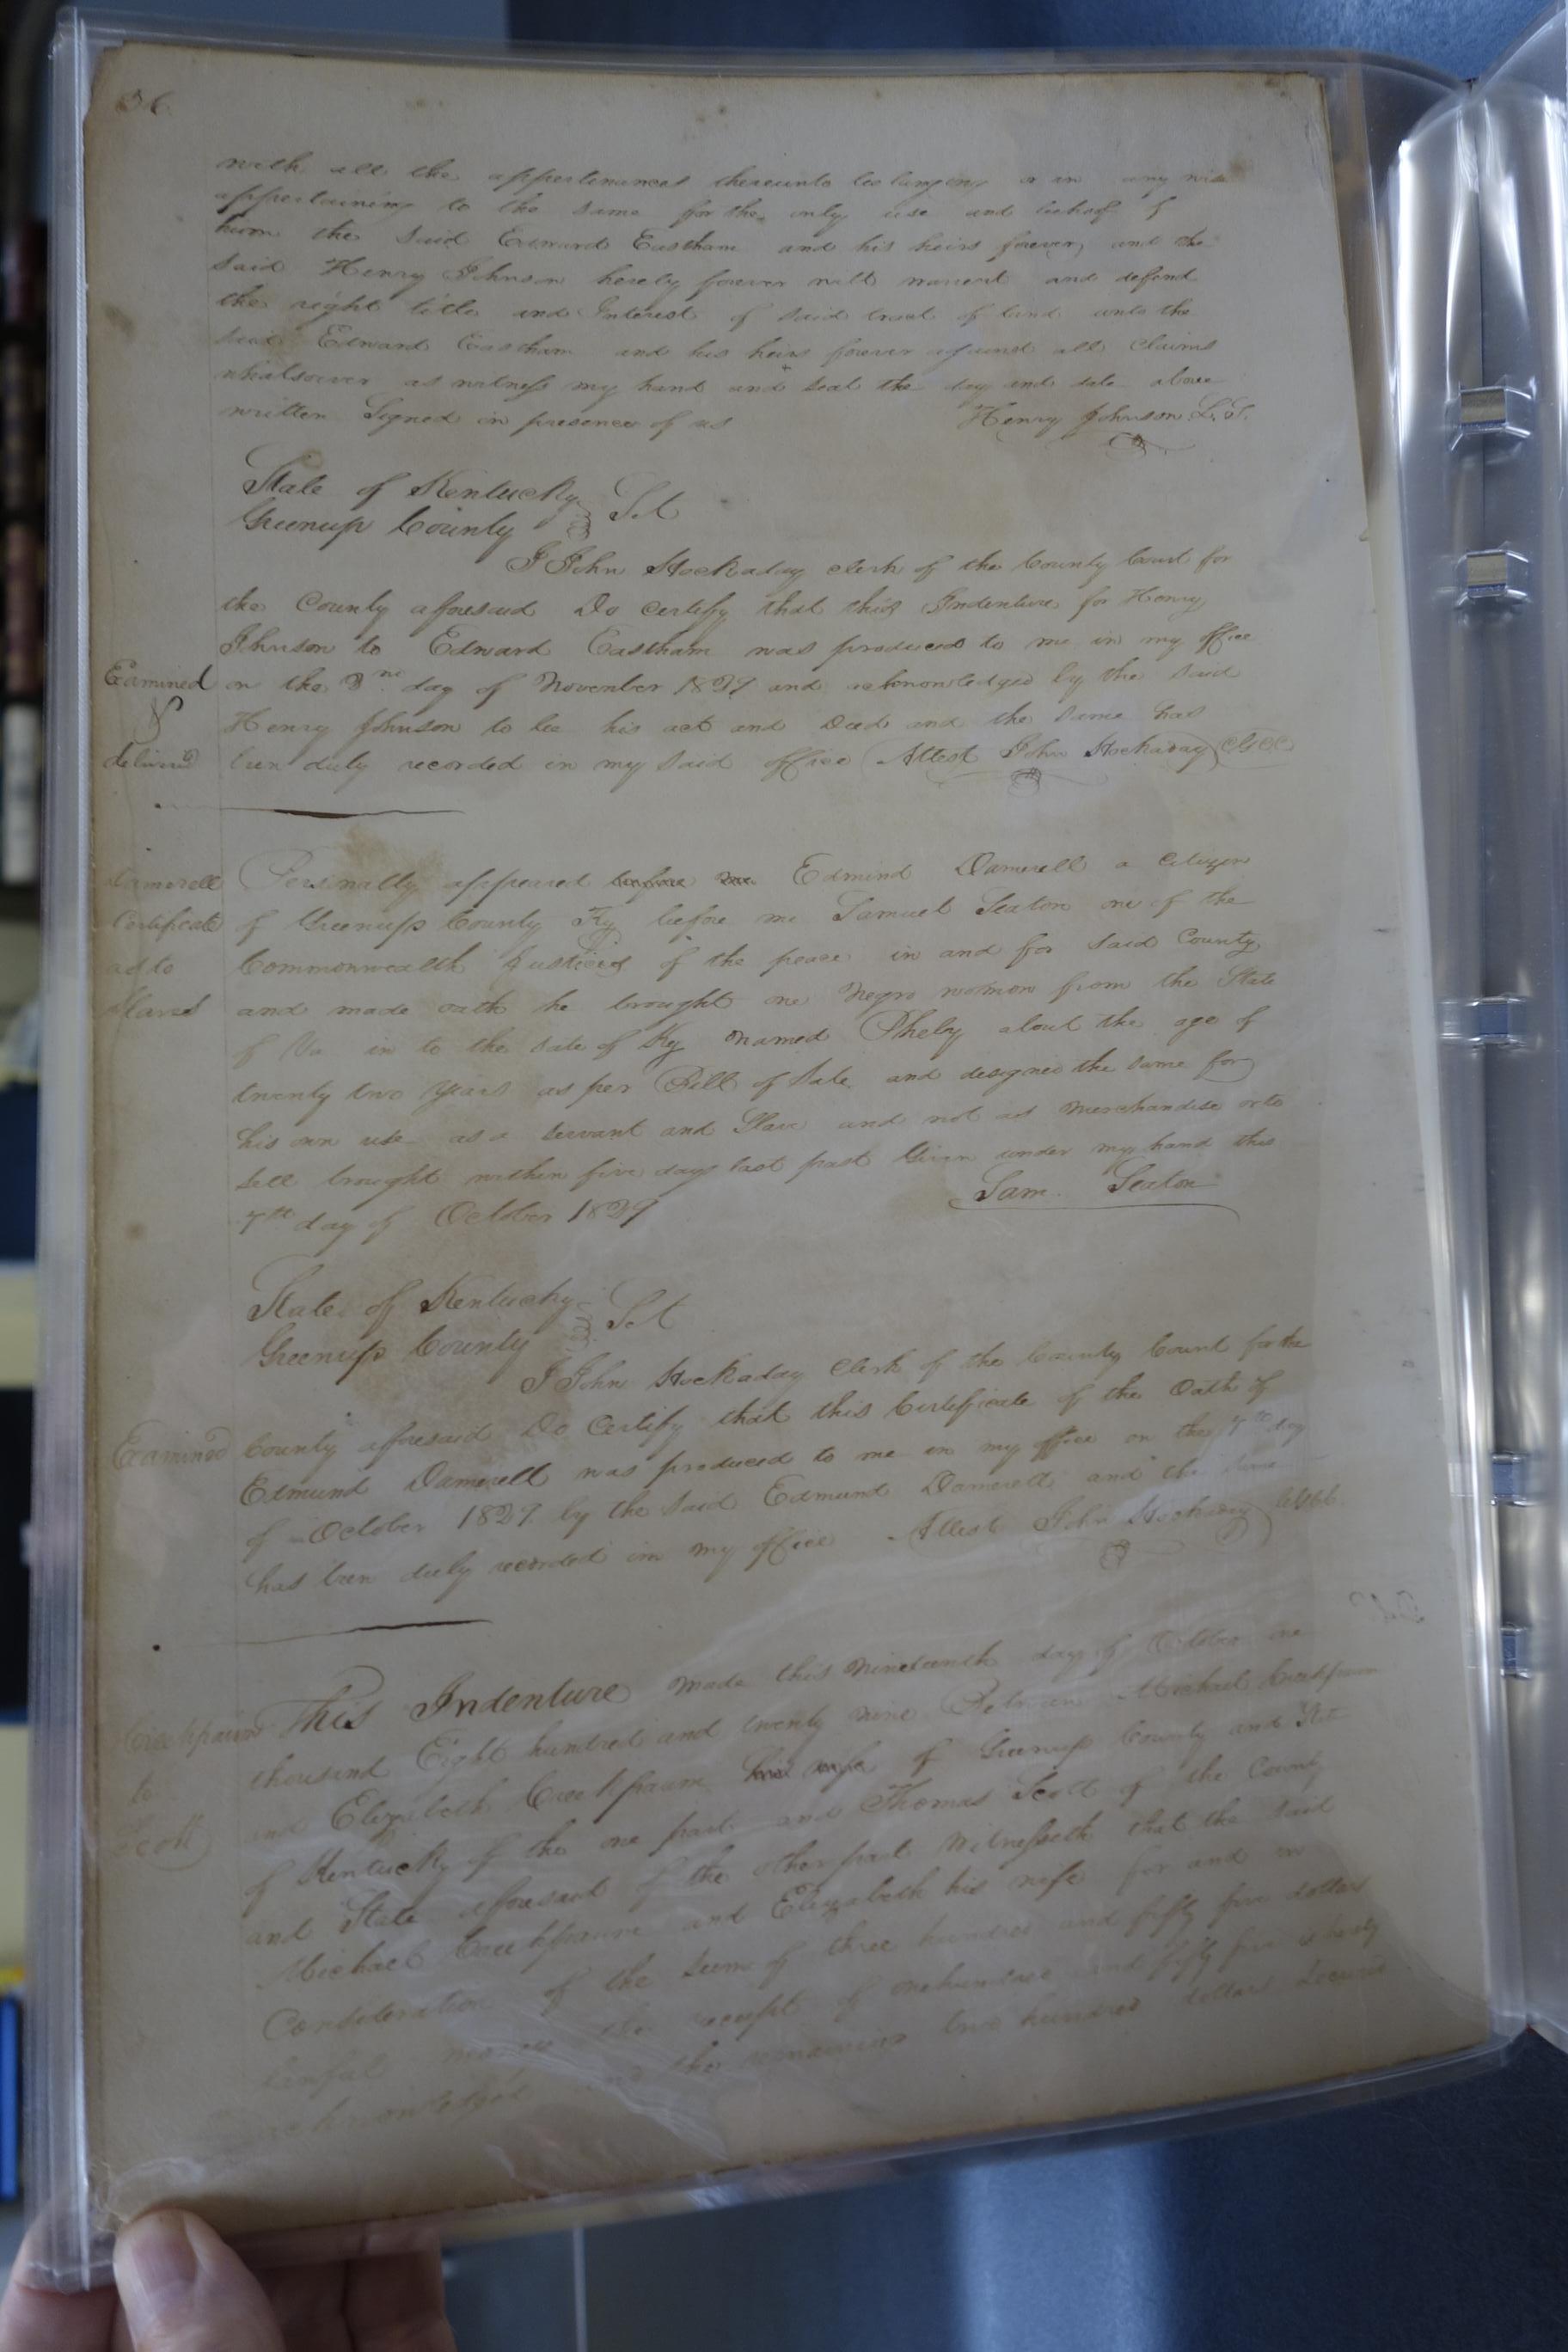 36
with all the appertinances thereunto belonging or in any wise
appertaining to the same for the only use and behoof of
him the said Edward Eastham and his heirs forever, and the
said Henry Johnson hereby forever will warrent and defend
the right title and Interest of said tract of land unto the
said Edward Eastham and his heirs forever against all claims
whatsoever as witness my hand and seal the day and date above
written Signed in presence of us Henry Johnson L.S.
State of Kentucky
Greenup County Sct
I John Hockaday clerk of the County Court for
the County aforesaid Do certify that this Indenture for Henry
Johnson to Edward Eastham was produced to me in my office
Examined on the 3nd day of November 1829 and acknowledged by the said
Henry Johnson to be his act and Deed and the same has
delivered been duly recorded in my said office Attest John Hockaday CGCC
Damerell Personally appeared before me Edmind Damerell a Citizen
Certificate of Greenup County Ky before me Samuel Seaton one of the
as to Commonwealth Justices of the peace in and for said County
slaves and made oath he brought one Negro woman from the State
of Va in to the sate of Ky named Pheby about the age of
twenty two years as per Bill of Sale and designes the same for
his own use as a servant and Slave and not as merchandise or to
sell brought within five days last past Given under my hand this
7th day of October 1829 Sam. Seaton
State of Kentucky
Greenup County Sct
I John Hockaday Clerk of the County Court for the
Examined County aforesaid Do Certify that this Certificate of the Oath of
Edmund Damerell was produced to me in my office on the 7th day
of October 1829 by the said Edmund Damerell and the same
has been duly recorded in my office Attest John Hockaday
This Indenture made this nineteenth day of October one
to thousand Eight hundred and twenty nine Between Michael
Scott and Elizabeth his wife of Greenup County and State
of Kentucky of the one part and Thomas Scott of the County
and State aforesaid of the other part Witnesseth that the said
Michael and Elizabeth his wife for and in
Consideration of the sum of three hundred and fifty five dollars
lawful money the receipt of one hundred and fifty five is hereby
acknowledged and the remaining two hundred dollars